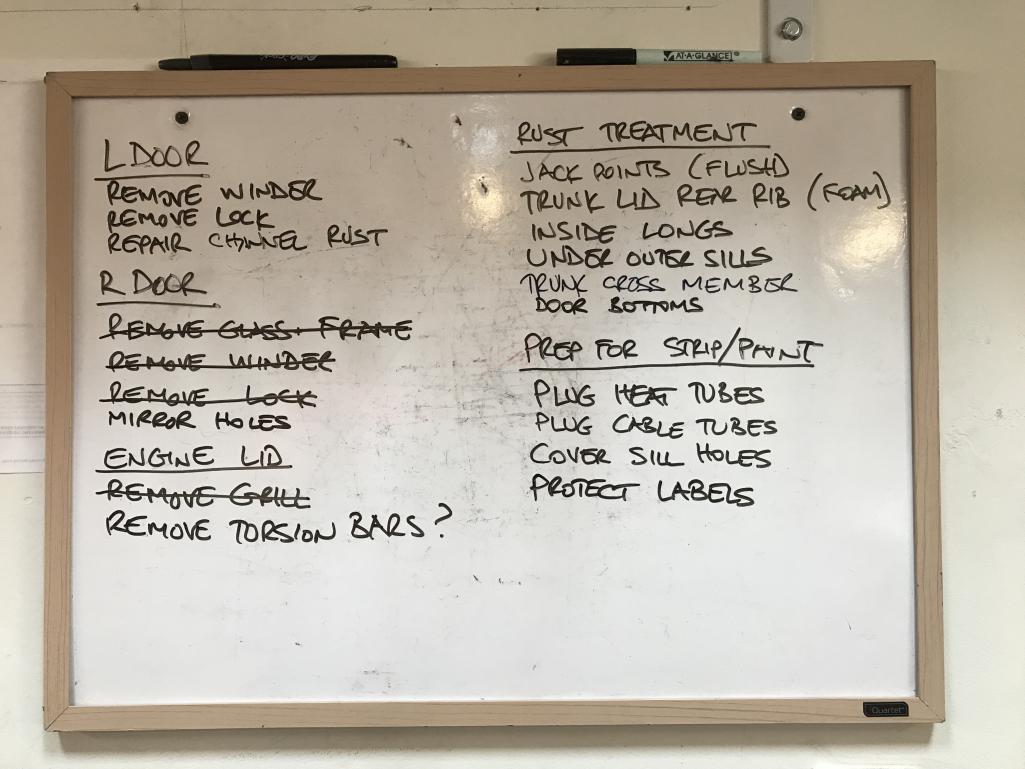 AT-A-GLANCE
L DOOR
REMOVE WINDER
REMOVE LOCK
REPAIR CHANNEL RUST
R DOOR
REMOVE GLASS + FRAME
REMOVE WINDER
REMOVE LOCK
MIRROR HOLES
ENGINE LID
REMOVE GRILL
REMOVE TORSION BARS?
RUST TREATMENT
JACK POINTS (FLUSH)
TRUNK LID REAR RIB (FOAM)
INSIDE LONGS
UNDER OUTER SILLS
TRUNK CROSS MEMBER
DOOR BOTTOMS
PREP FOR STRIP/PAINT
PLUG HEAT TUBES
PLUG CABLE TUBES
COVER SILL HOLES
PROTECT LABELS
Quartet